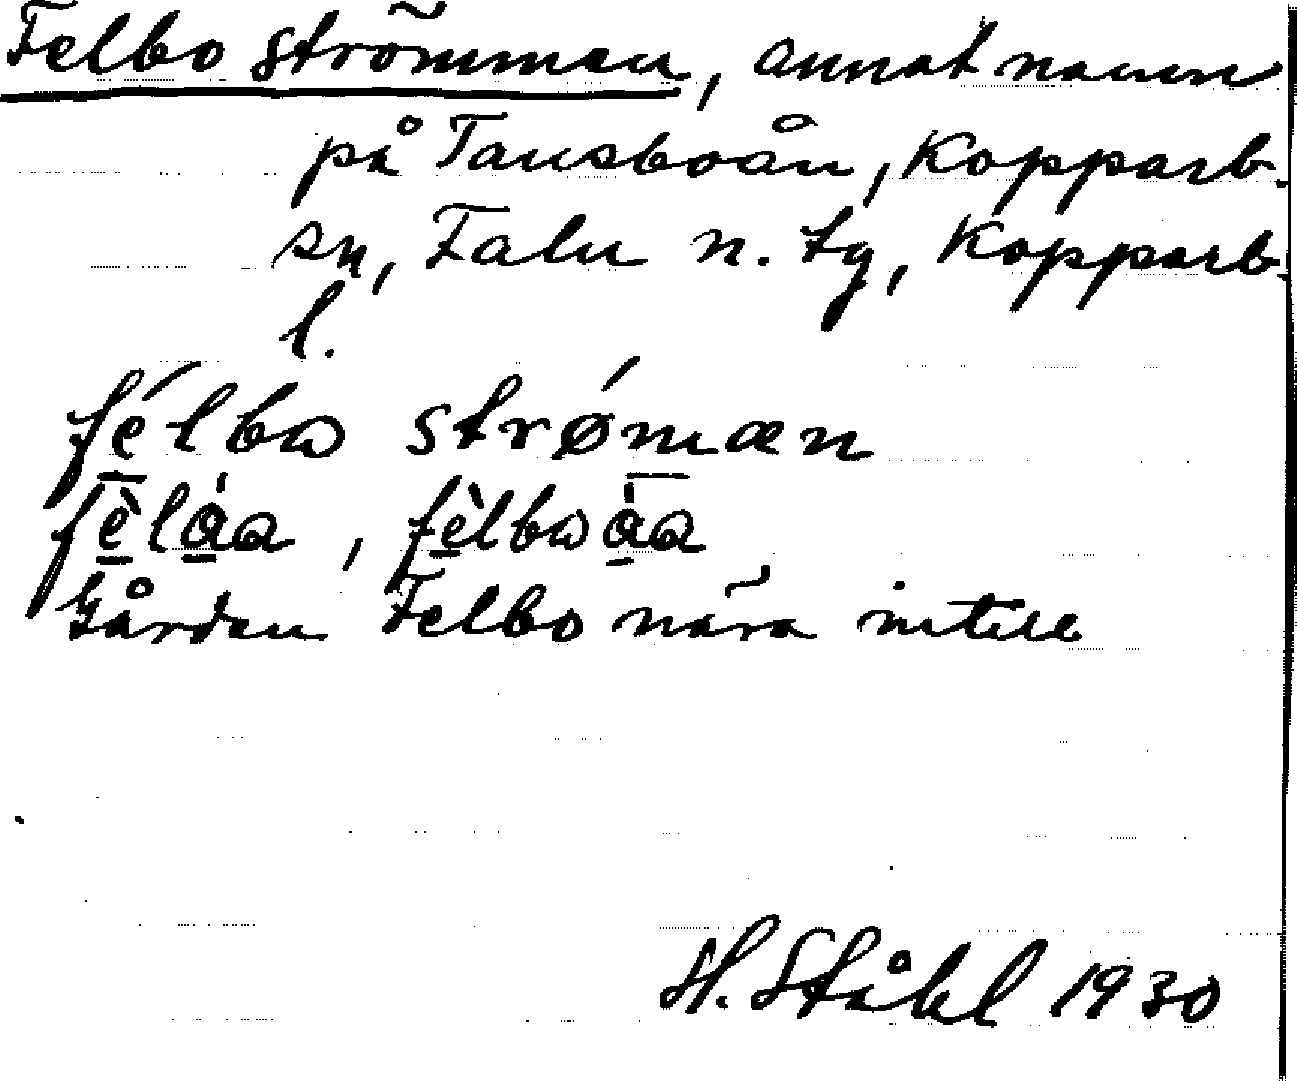 Felbo strömmen, annat namn
på Tansboån, Kopparb.
sn, Falu n. tg, Kopparb.
l.
félbω strǿmæn
fèlåa, fèlbωåa
Gården Felbo nära intill
H. Ståhl 1930